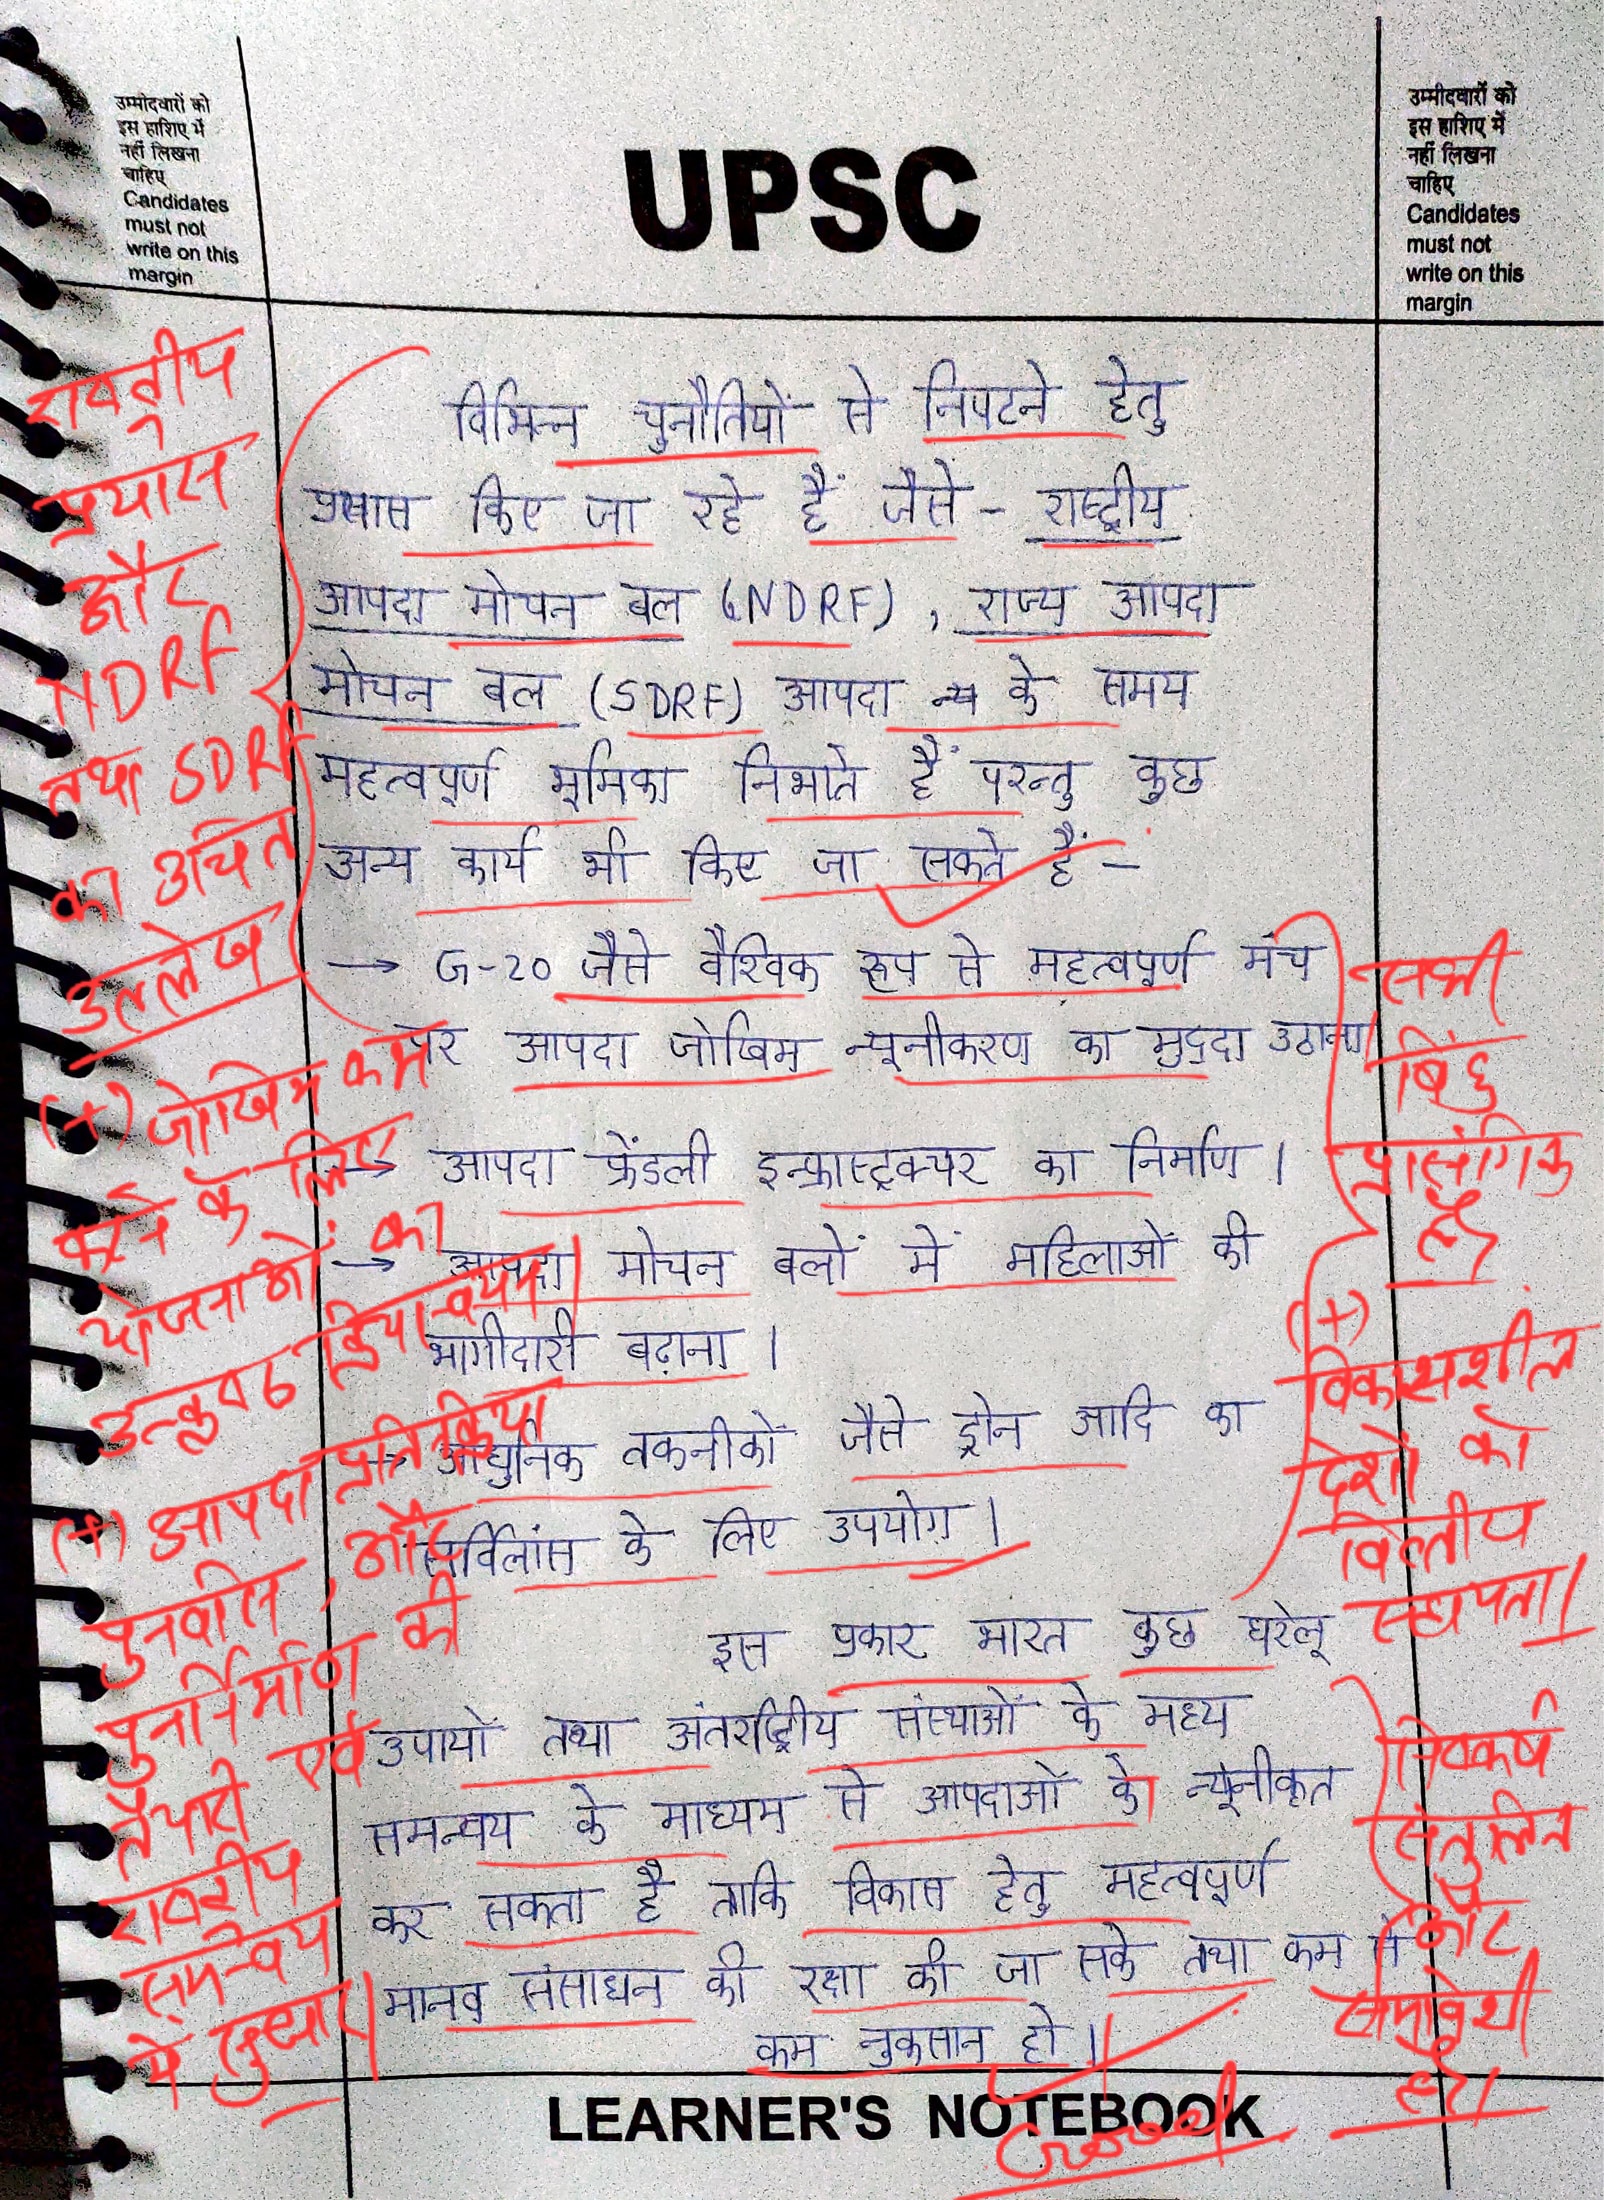 उम्मीदवारों को
इस हाशिए में
नहीं लिखना
चाहिए
Candidates
must not
write on this
margin
UPSC
उम्मीदवारों को
इस हाशिए में
नहीं लिखना
चाहिए
Candidates
must not
write on this
margin
विभिन्न चुनौतियों से निपटने हेतु
प्रयास किए जा रहे हैं जैसे - राष्ट्रीय
आपदा मोचन बल (NDRF), राज्य आपदा
मोचन बल (SDRF) आपदा के समय
महत्वपूर्ण भूमिका निभाते हैं परन्तु कुछ
अन्य कार्य भी किए जा सकते हैं -
→ G-20 जैसे वैश्विक रूप से महत्वपूर्ण मंच
पर आपदा जोखिम न्यूनीकरण का मुद्दा उठाना
→ आपदा फ्रेंडली इन्फ्रास्ट्रक्चर का निर्माण।
→ आपदा मोचन बलों में महिलाओं की
भागीदारी बढ़ाना।
→ आधुनिक तकनीकों जैसे ड्रोन आदि का
सर्विलांस के लिए उपयोग।
इस प्रकार भारत कुछ घरेलू
उपायों तथा अंतर्राष्ट्रीय संस्थाओं के मध्य
समन्वय के माध्यम से आपदाओं को न्यूनीकृत
कर सकता है ताकि विकास हेतु महत्वपूर्ण
मानव संसाधन की रक्षा की जा सके तथा कम से
कम नुकसान हो।
प्रयास
और
NDRF
तथा SDRF
का उचित
उल्लेख
(+) जोखिम कम
करने के लिए
योजनाओं का
उत्कृष्ट क्रियान्वयन।
(+) आपदा प्रतिक्रिया
पुनर्वास, और
पुनर्निर्माण की
तैयारी एवं
समन्वय
में सुधार।
सभी
बिंदु
प्रासंगिक
है
(+)
विकासशील
देशों को
वित्तीय
सहायता।
निष्कर्ष
संतुलित
और
समावेशी
है।
LEARNER'S NOTEBOOK
Good